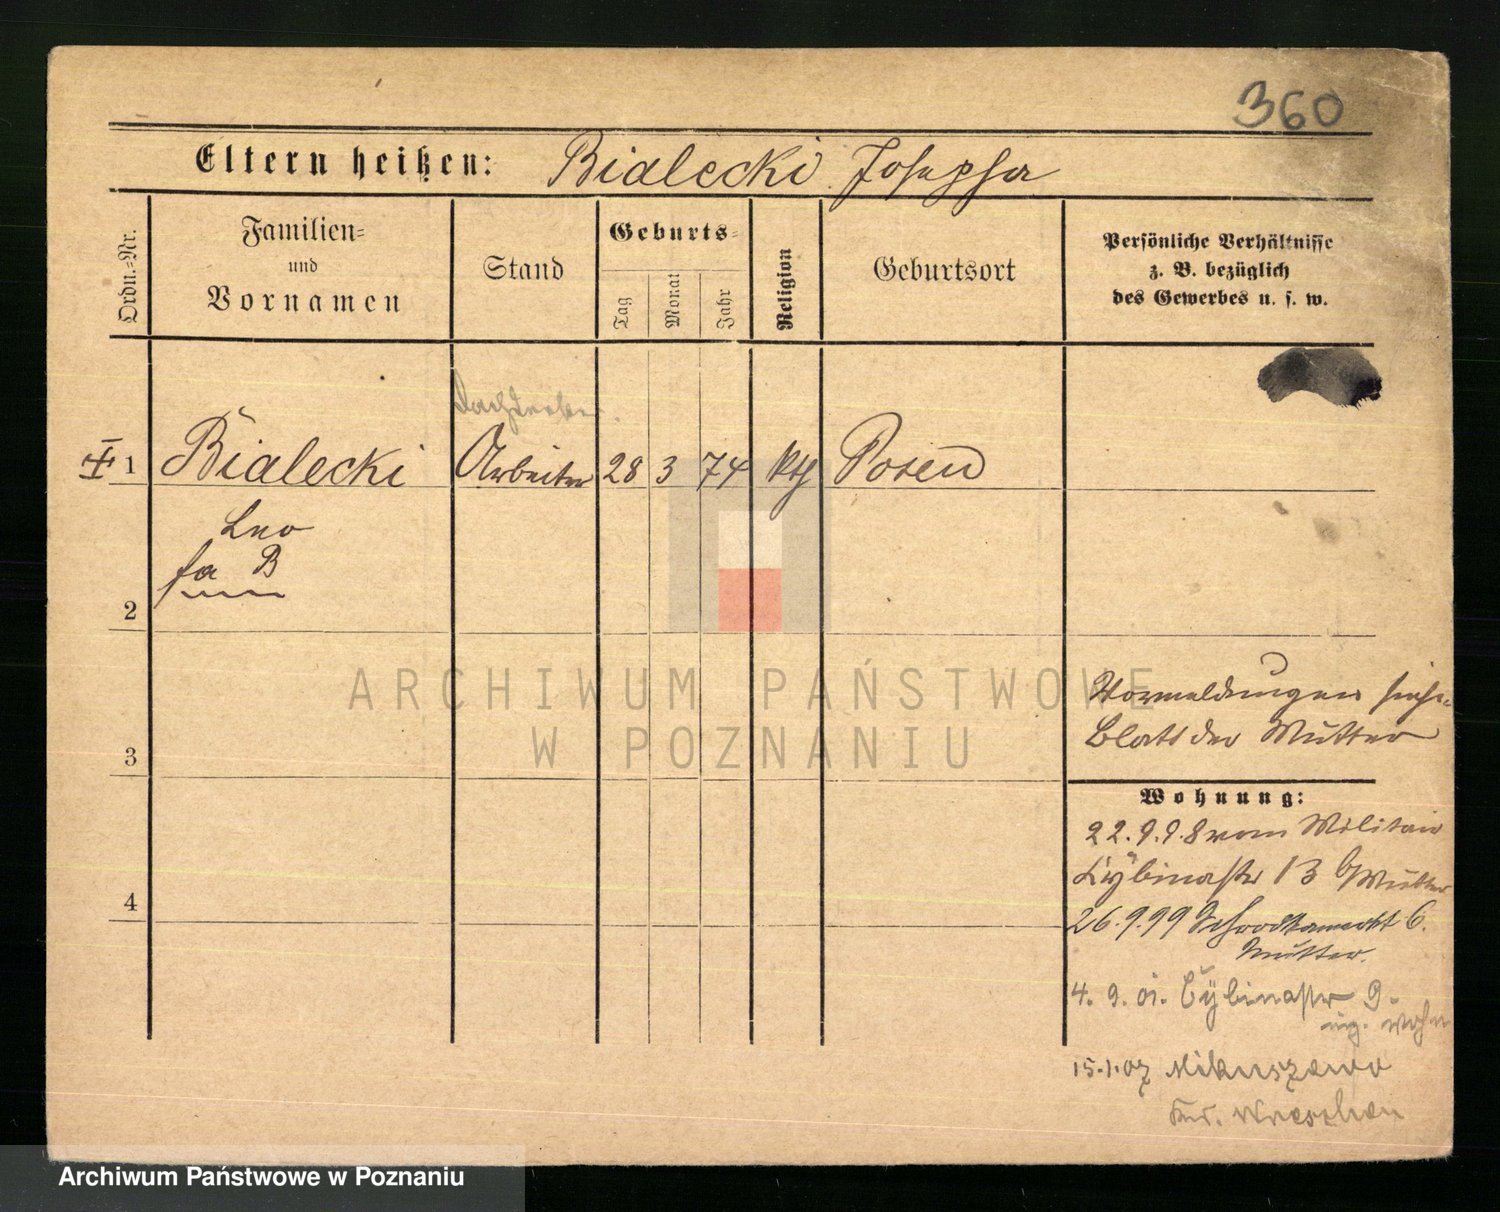 360
Eltern heißen: Bialecki Josepha
Ordn.-Nr.
Familien-
und
Vornamen
Stand
Geburts-
Tag
Monat
Jahr
Religion
Geburtsort
Persönliche Verhältnisse
z. B. bezüglich
des Gewerbes u. s. w.
Dachdecker
1 Bialecki Arbeiter 28 3 74 kth Posen
Leo
B
2
ARCHIWUM PAŃSTWOWE
W POZNANIU
Vormeldungen siehe
Blatt der Mutter
3
Wohnung:
22.9.98 vom Militair
Cybinastr 13 b/Mutter
4
26.9.99 Schrodkamarkt 6.
Mutter.
4. 9. 01. Cybinastr 9.
eig. Wohn
15.1.07 Mikuszewo
Krs. Wreschen
Archiwum Państwowe w Poznaniu